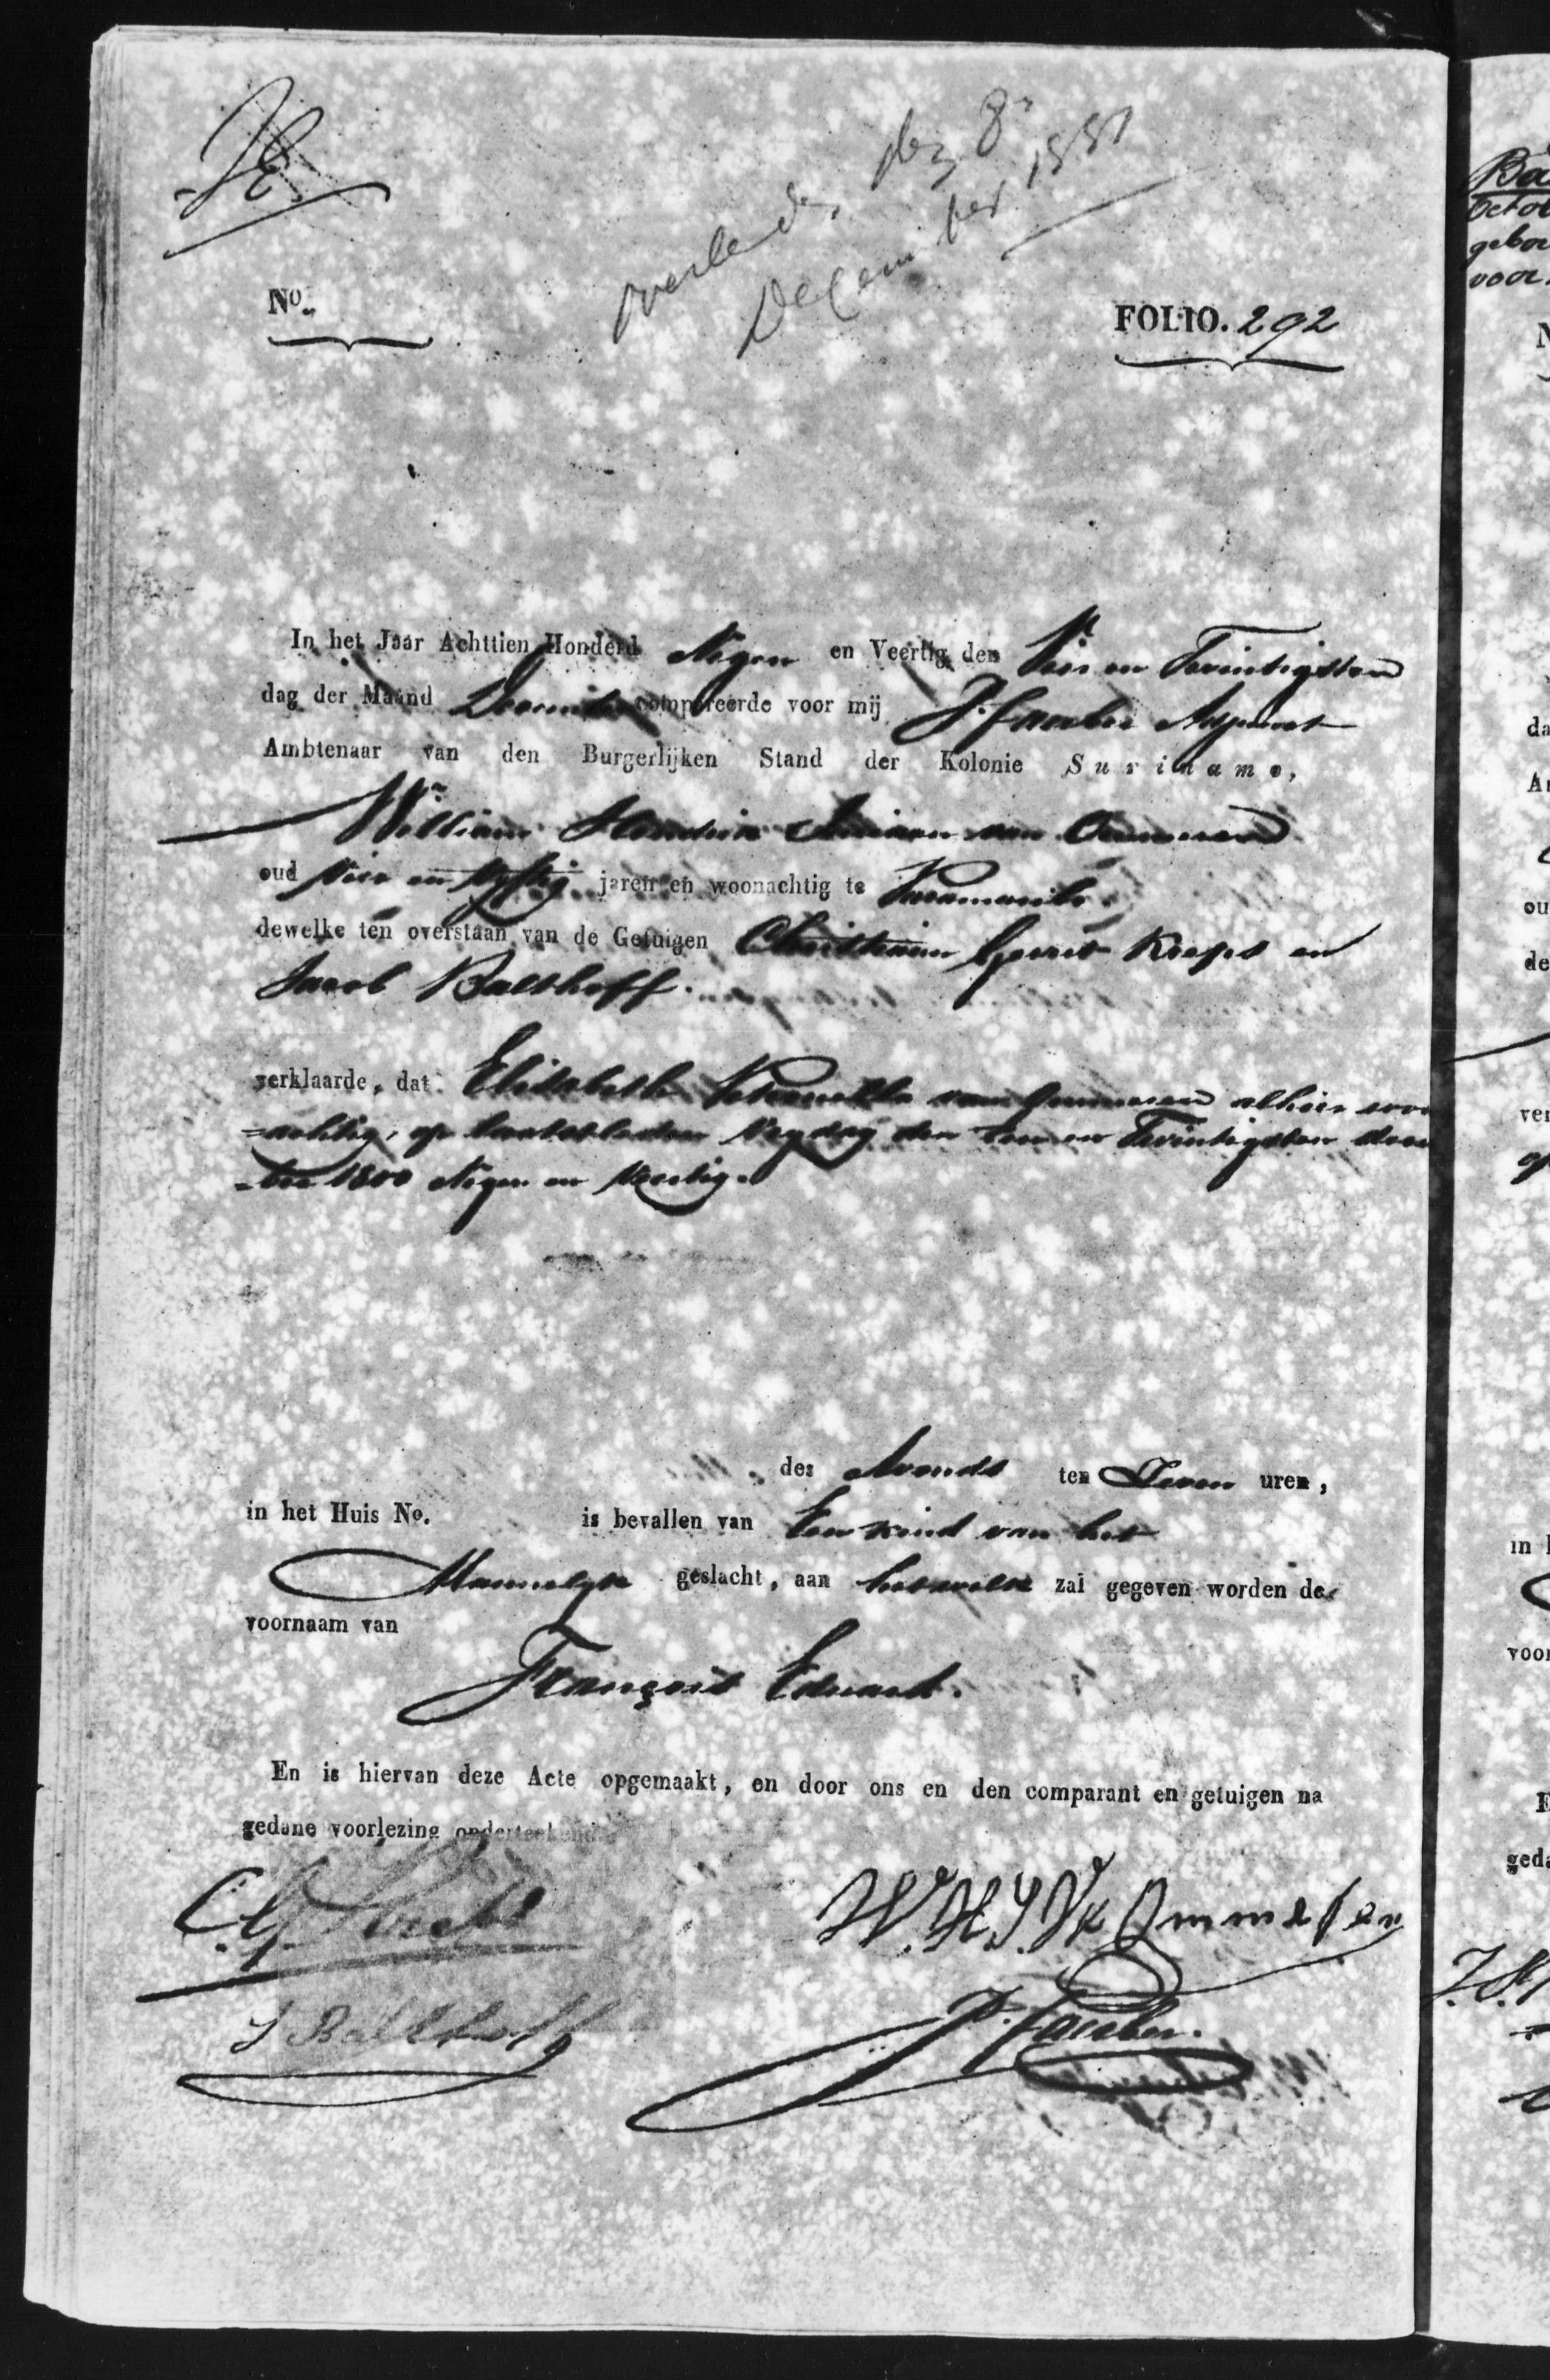 overleden den 8
December 1851
No.
FOLIO. 292
In het Jaar Achttien Honderd Negen en Veertig den Vier en Twintigsten
dag der Maand December compareerde voor mij P. Faerber Adjunct
Ambtenaar van den Burgerlijken Stand der Kolonie Suriname,
William Hendrik van Ommeren
oud Vier en Vyftig jaren en woonachtig te Paramaribo
dewelke ten overstaan van de Getuigen Christiaan Gerrit en
Jacob Balthoff.
verklaarde, dat Elisabeth Petronella van Ommeren alhier woon
=achtig, op laatstleden Vrydag den Een en Twintigsten decem
=ber 1800 Negen en Veertig.
des Avonds ten Zeven uren,
in het Huis No. is bevallen van Een kind van het
Mannelyk geslacht, aan hetwelk zal gegeven worden de
voornaam van
François Eduard.
En is hiervan deze Acte opgemaakt, en door ons en den comparant en getuigen na
gedane voorlezing onderteekend
C.G.
W.H.J. V. Ommeren
J Balthoff
P. Faerber.